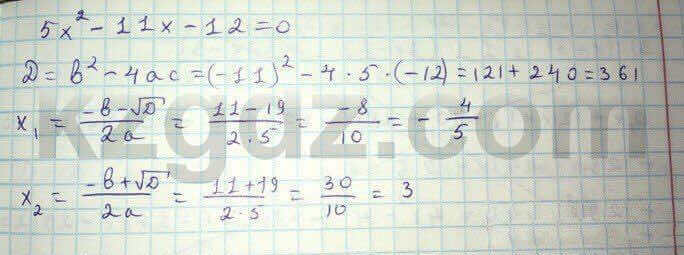 5x² - 11x - 12 = 0
D = b² - 4ac = (-11)² - 4 · 5 · (-12) = 121 + 240 = 361
x₁ = (-b - √D)/(2a) = (11 - 19)/(2 · 5) = (-8)/10 = - 4/5
x₂ = (-b + √D)/(2a) = (11 + 19)/(2 · 5) = 30/10 = 3
kzgdz.com